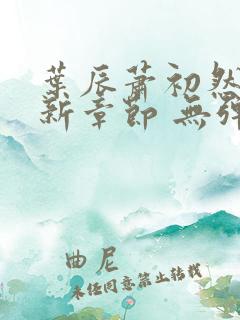 葉辰蕭初然
新章節 無彈
曲尼
未經同意禁止轉載